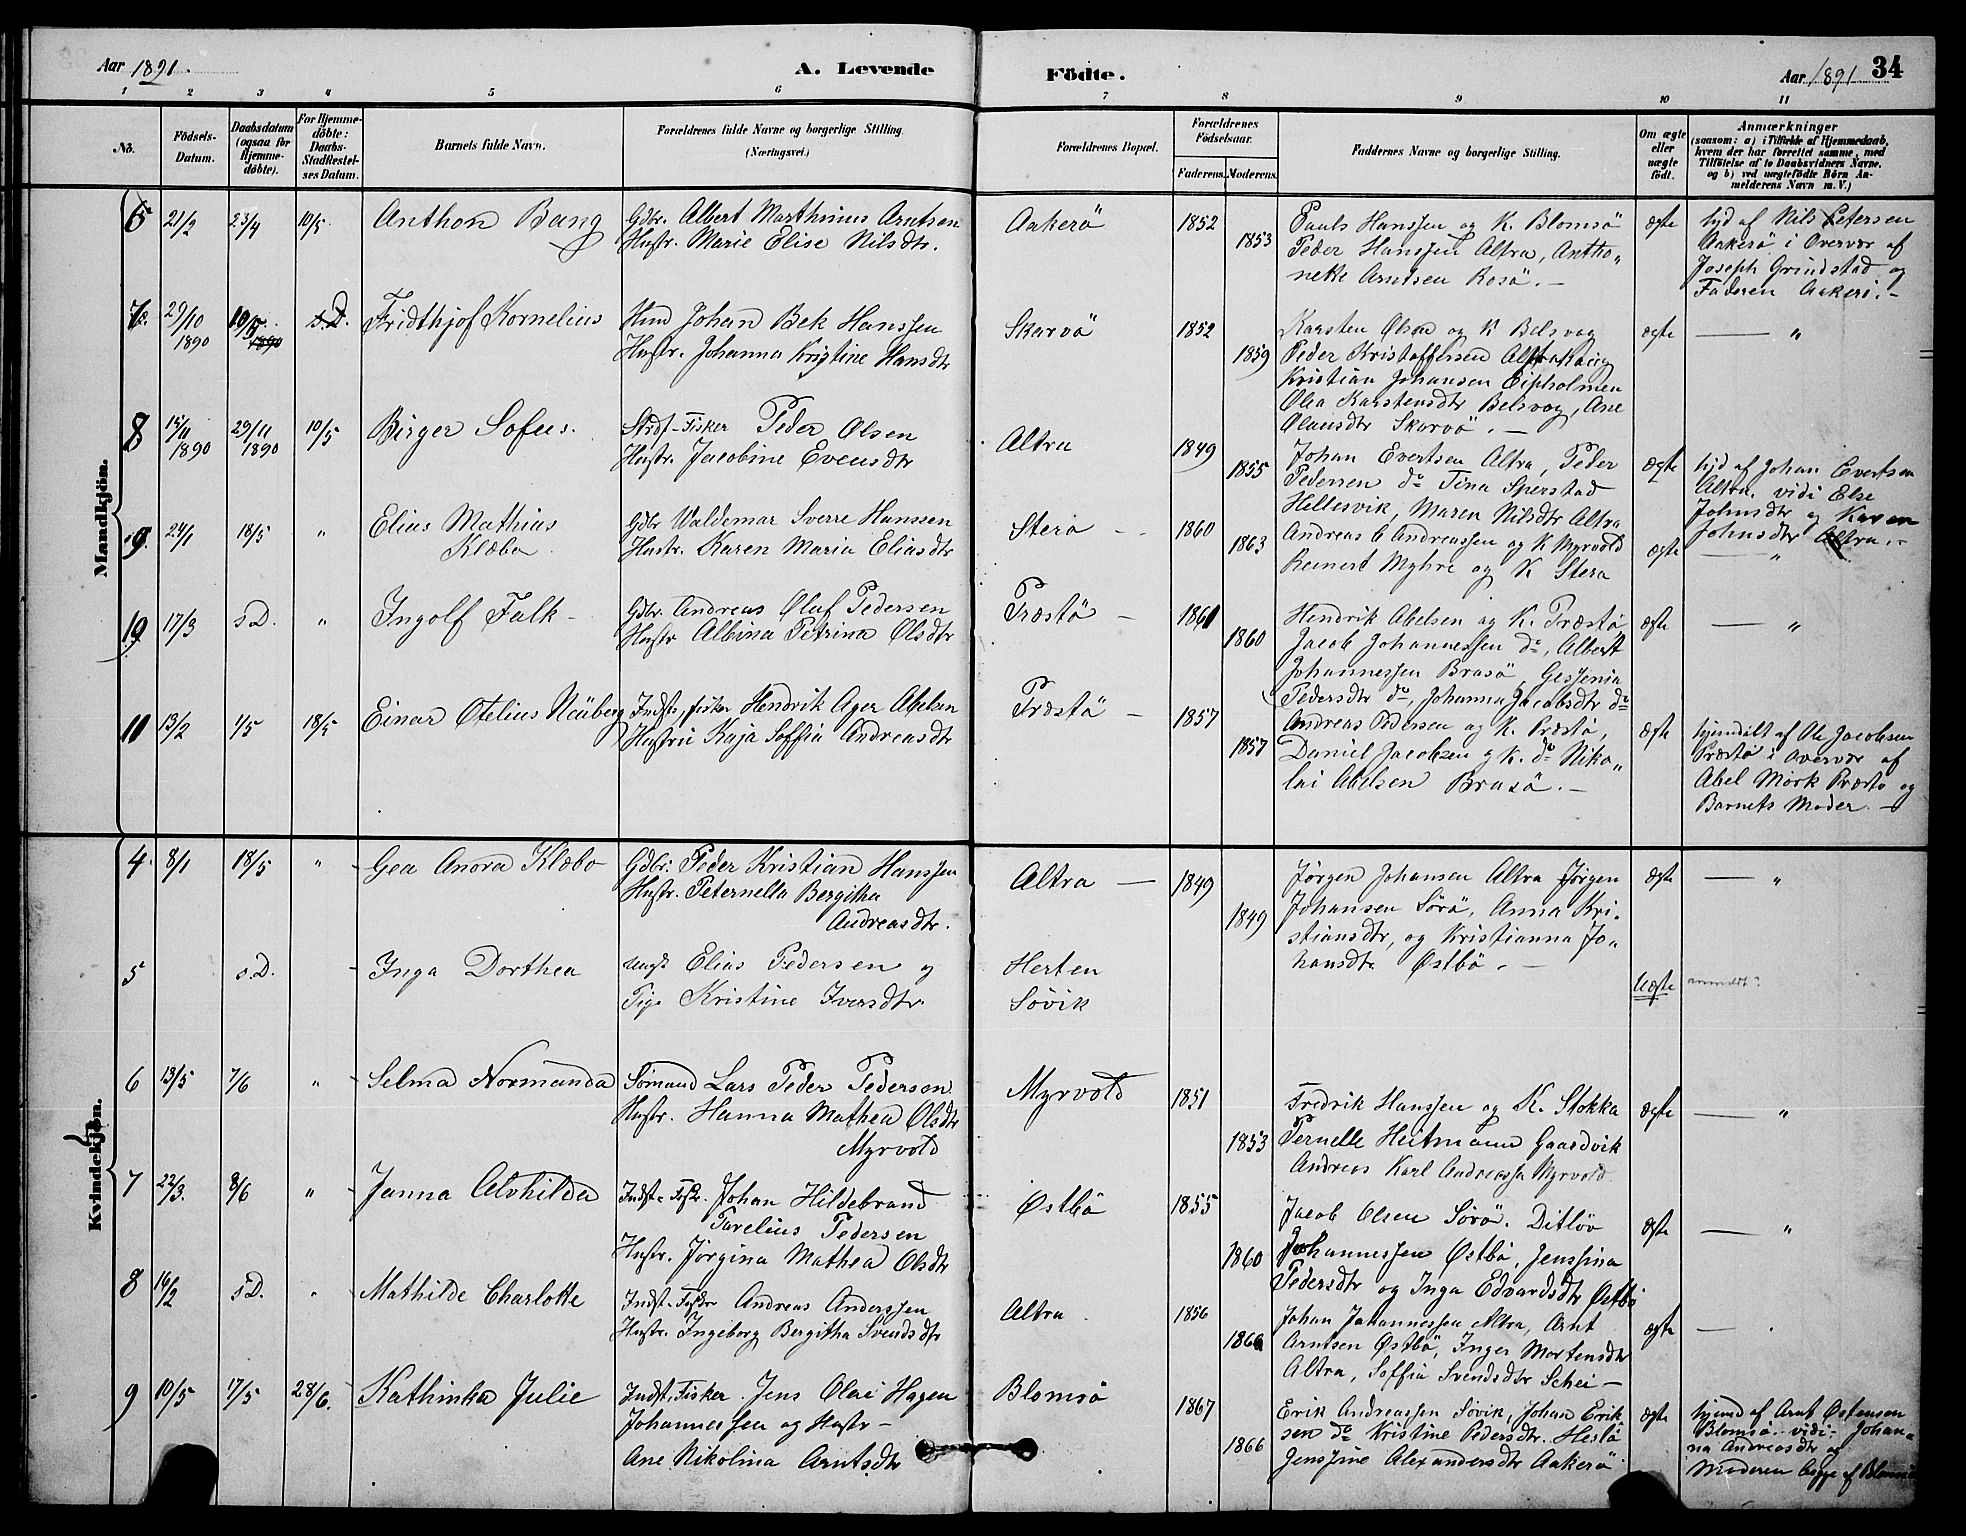 Aar 1891. A. Levende Födte. Aar 1891 34
1 2 3 4 5 6 7 8 9 10 11
No. Födsels-Datum. Daabsdatum (ogsaa for Hjemme-döbte). For Hjemme-döbte: Daabs-Stadfæstel-ses Datum. Barnets fulde Navn. Forældrenes fulde Navne og borgerlige Stilling. (Næringsvei.) Forældrenes Bopæl. Forældrenes Födselsaar. Faderens. Moderens. Faddernes Navne og borgerlige Stilling. Om ægte eller uægte födt. Anmærkninger (saasom: a) i Tilfælde af Hjemmedaab, hvem der har forrettet samme, med Tilföielse af to Daabsvidners Navne. og b) ved uægtefödte Börn An-melderens Navn m. V.)
Mandkjön.
6 21/2 23/4 10/5 Anthon Bang
Gdbr. Albert Marthinus Arntsen
Hustr. Marie Elise Nilsdtr.
Aakerö 1852 1853
Pauls Hanssen og K. Blomsö
Peder Hanssen Altra, Antho„
nette Arntsen Rosö. –
ægte
hjd af Nils Petersen
Aakerö i Overvær af
Joseph Grindstad og
Faderen Aakerö. –
7 29/10 1890 19/5 1890 s.D. Fridthjof Kornelius
Johan Bek Hanssen
Hustr. Johanna Kristine Hansdtr
Skarvö 1852 1859
Karsten Olsen og K Belsvag
Peder Kristoffersen
Kristian Johansen
Olea Karstensdtr Belsvag, Ane
Olausdtr Skarvö. –
ægte – „
8 15/11 1890 29/11 1890 10/5 Birger Sofus.
Fisker Peder Olsen
Hustr. Jacobine Evensdtr
Altra 1849 1855
Johan Evertsen Altra, Peder
Pedersen do Tina Sperstad
Hellesvik, Maren Nilsdtr Altra
ægte
hjd af Johan Evertsen
Altra. vidi Else
Johnsdtr og Karen
Johnsdtr Altra. –
9. 24/1 18/5 „ Elias Mathias
Klæbo
Gdbr Waldemar Sverre Hanssen
Hustr. Karen Maria Eliasdtr
Stera – 1860 1863
Andreas C Andreassen og K Myrvold
Reinert Myhre og K Stera
ægte – „
10 17/3 s.D. „ Ingolf Falk –
Gdbr. Andreas Oluf Pedersen
Hustr Albina Petrina Olsdtr
Præstö – 1861 1860
Hendrik Abelsen og K. Præstö
Jacob Johannessen do, Albert
Johannessen Brasö, Gessenia
Pedersdtr do, Johanna Jacobsdtr do
ægte – „
11 13/2 1/5 18/5 Einar Otelius Neüberg
Indst, fisker Hendrik Ager Abelsen
Hustru Kaja Soffia Andreasdtr
Præstö – 1857 1857
Andreas Pedersen og K. Præstö,
Daniel Jacobsen og K. do Niko„
lai Abelsen Brasö. –
ægte
hjemdöbt af Ole Jacobsen
Præstö i overvær af
Abel Mörk Præstö og
Barnets Moder. –
Kvindekjön.
4 8/1 18/5 „ Gea Anora Klæbo
Gdbr. Peder Kristian Hanssen
Hustr. Peternella Bergitha
Andreasdtr.
Altra – 1849 1849
Jørgen Johansen Altra Jørgen
Johansen Sörö, Anna Kri„
stiansdtr, og Kristianna Jo„
hansdtr Østbö. –
ægte – „
5 s.D. Inga Dorthea
Ungk Elias Pedersen og
Pige Kristine Iversdtr.
Herten
Søvik
Uægte
6 13/5 7/6 „ Selma Normanda
Sömand Lars Peder Pedersen
Hustr. Hanna Mathea Olsdtr
Myrvold
Myrvold 1851 1853
Fredrik Hanssen og K. Stokka
Pernelle Heitmann Gaasdvik
Andreas Karl Andreassen Myrvold.
ægte – „
7 22/3. 8/6 „ Janna Alvhilda
Indst. Johan Hildebrand
Parelius Pedersen
Hustr. Jörgina Mathea Olsdtr
Østbö 1855 1860
Jacob Olsen Sörö. Ditlöv
Johannessen Østbö, Jenssina
Pedersdtr og Inga Edvardsdtr Østbö
ægte – „
8 16/2 s.D. „ Mathilde Charlotte
Indst. Andreas Anderssen
Hustr. Ingeborg Bergitha Svendsdtr
Altra. 1856 1866
Johan Johannessen Altra, Arnt
Arntsen Østbö, Inger Mortensdtr
Altra, Soffia Svendsdtr Schei –
ægte – .
9 10/5 17/5 28/6. Kathinka Julie
Indst. Fisker. Jens Olai Hagen
Johannessen og Hustr –
Ane Nikolina Arntsdtr
Blomsö 1867 1866
Erik Andreassen Søvik, Johan Erik
sen do Kristine Pedersdtr. Heslö
Jenssine Alexandersdtr Aakerö
ægte
hjemd af Arnt Østensen
Blomsö. vidi – Johan„
na Andreasdtr og
Moderen begge af Blomsö